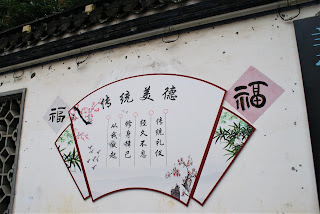 福
传统美德
福
传统礼仪
经久不息
修身律己
从我做起